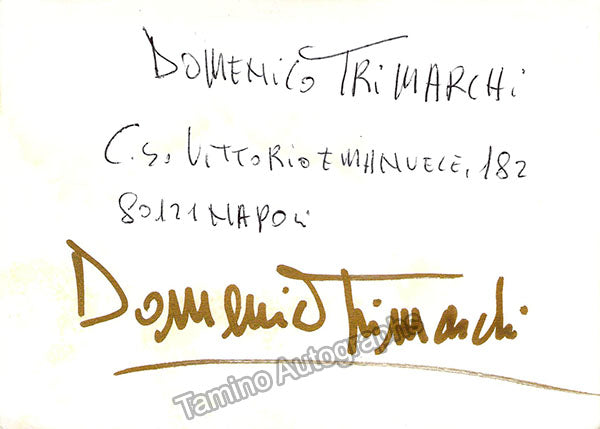 DOMENICO TRIMARCHI
C.so VITTORIO EMANUELE, 182
80121 NAPOLI
Domenico Trimarchi
Tamino Autographs